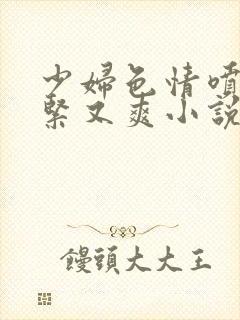 少婦色情噴
緊又爽小說
饅頭大大王